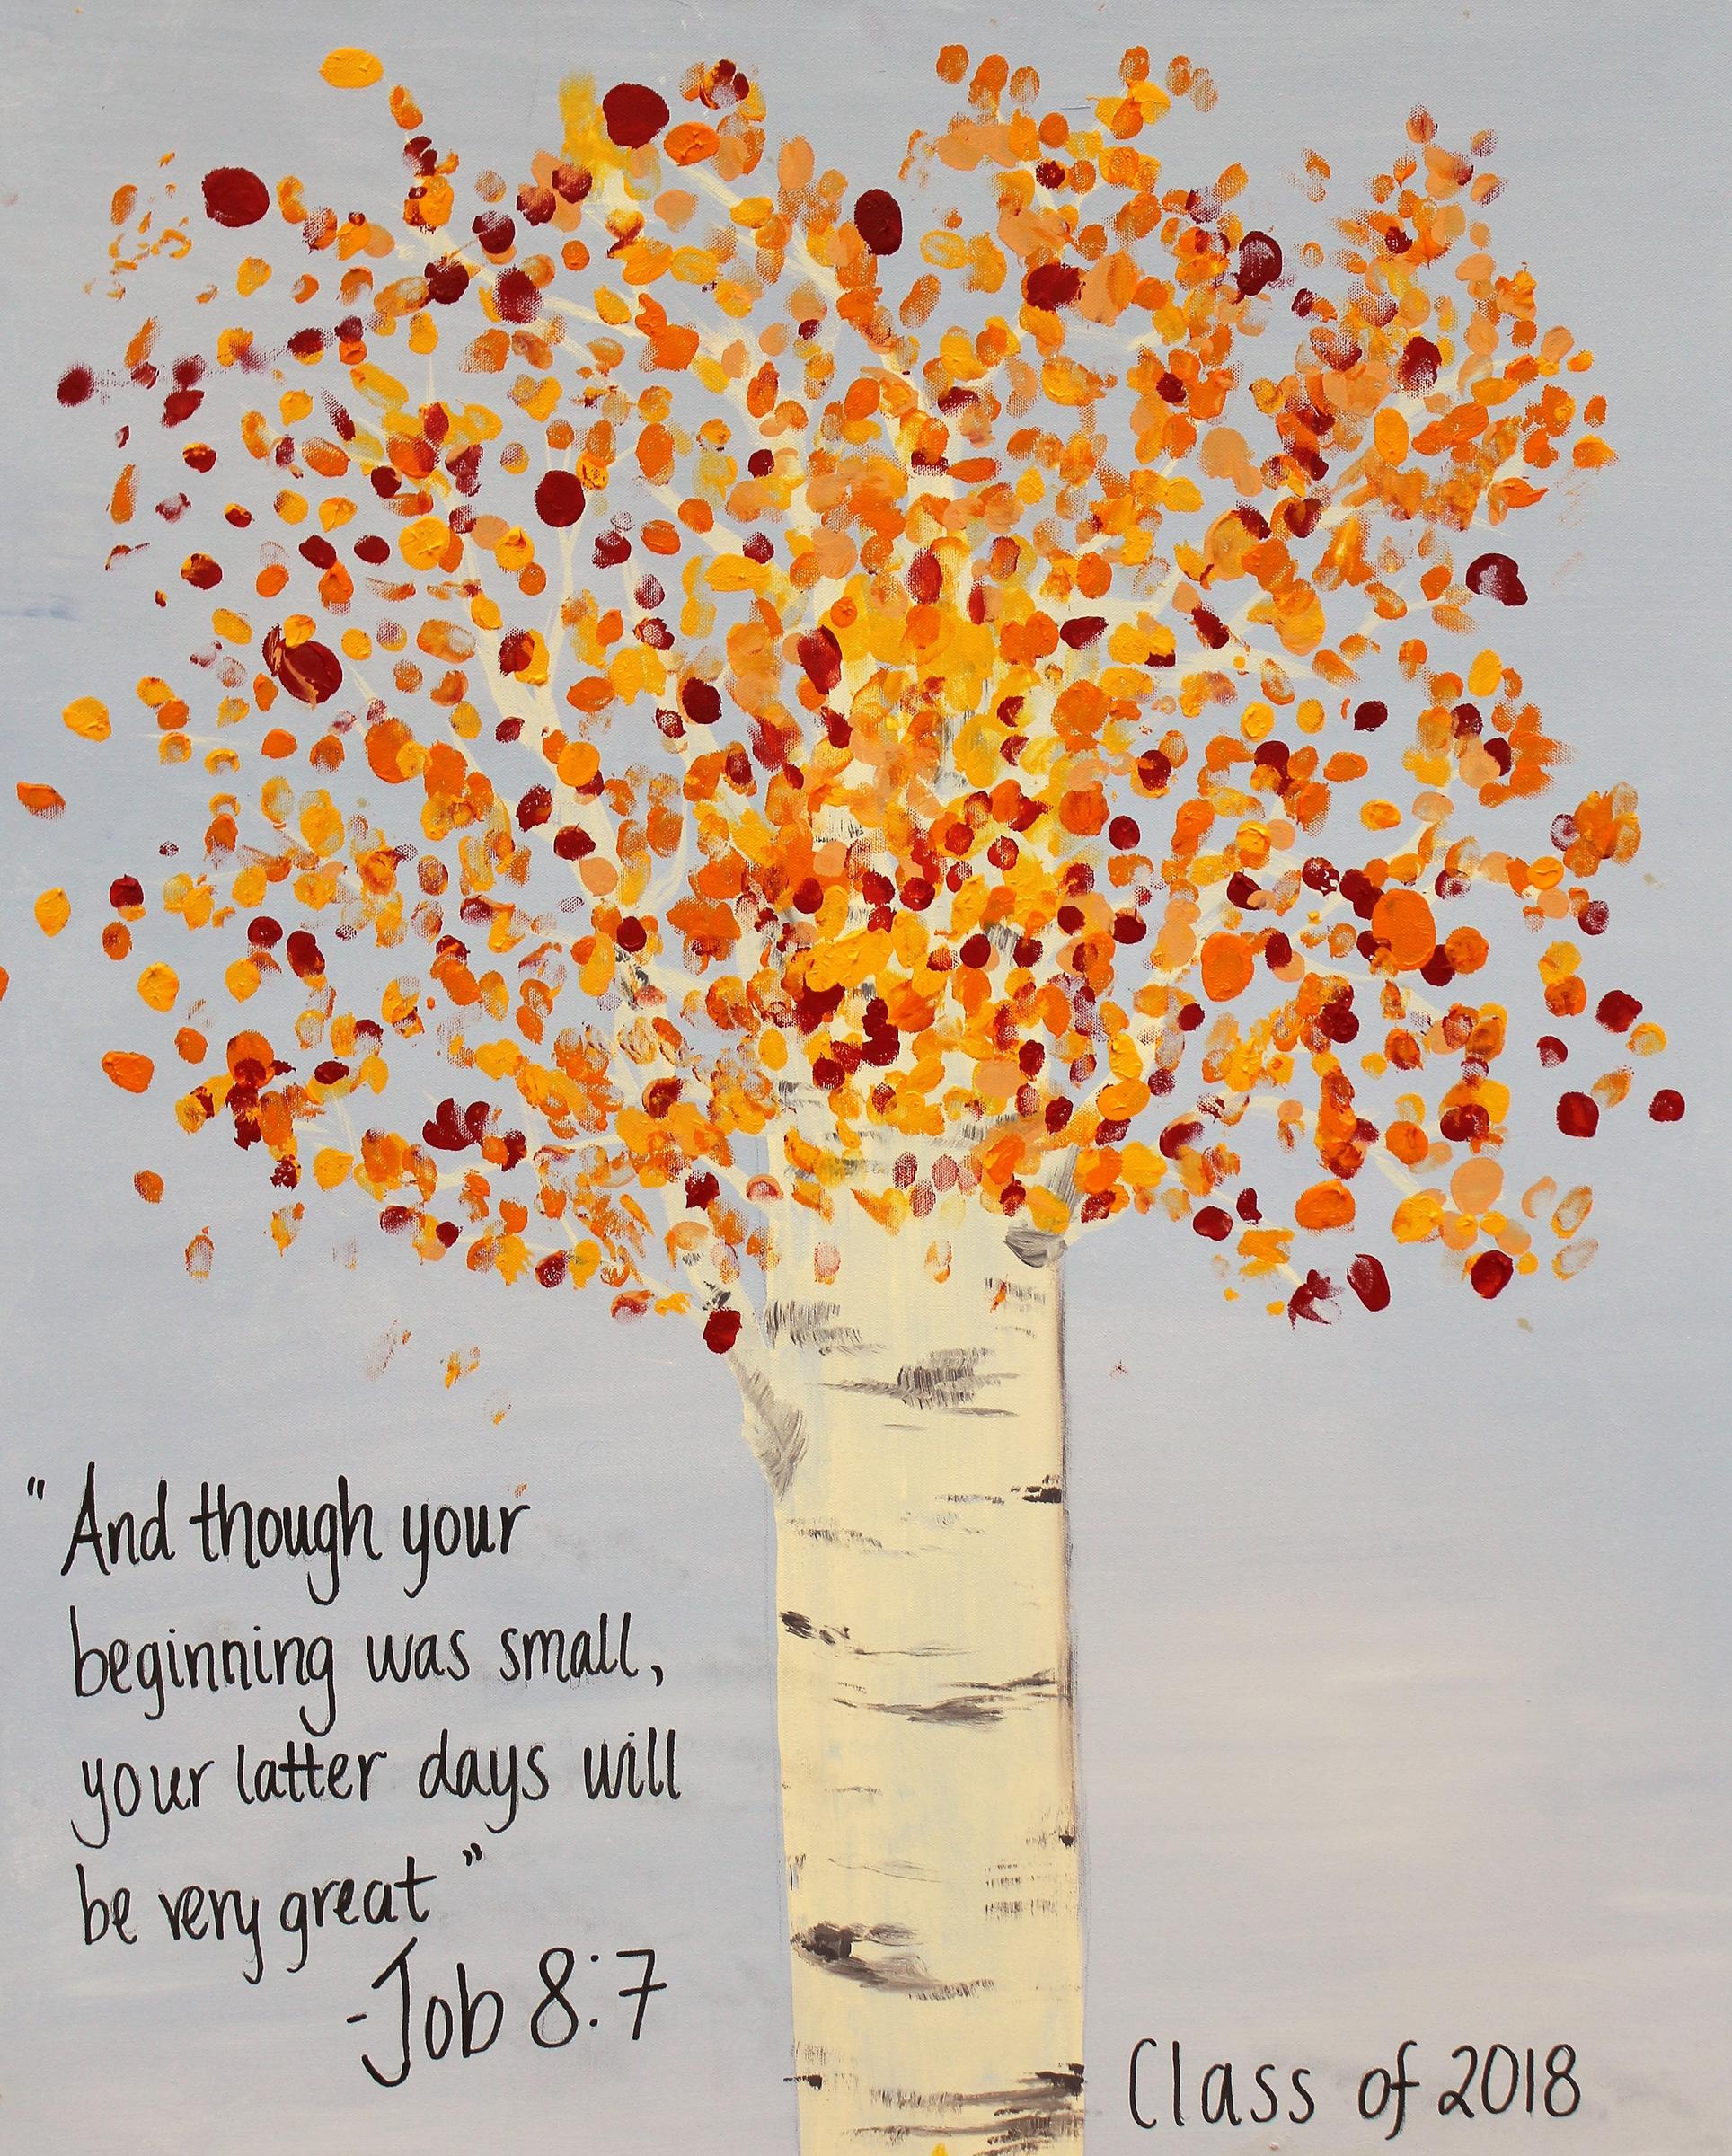 "And though your
beginning was small,
your latter days will
be very great"
-Job 8:7
Class of 2018